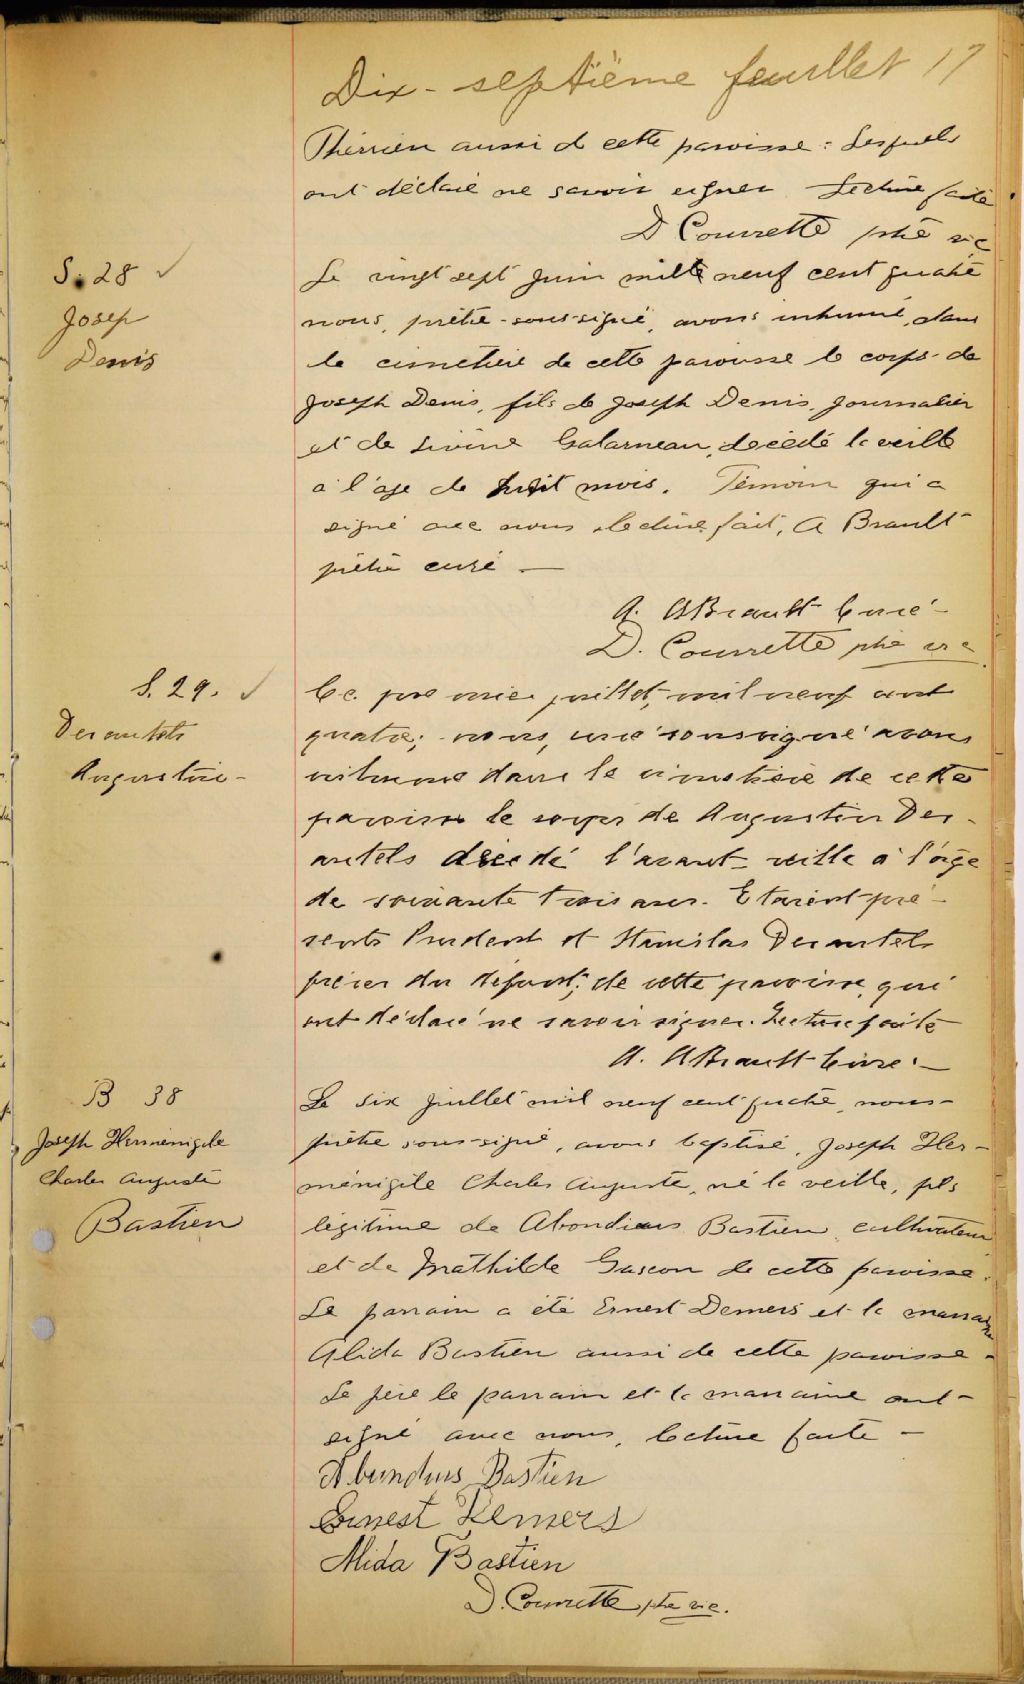 Dix-septième feuillet 17
Thérrien aussi de cette paroisse : Lesquels
ont déclaré ne savoir signer Lecture faite
D Courrette ptre vic
S. 28
Josep
Denis
Le vingt sept Juin mille neuf cent quatre
nous, prêtre-sous-signé, avons inhumé, dans
le cimetière de cette paroisse le corps de
Joseph Denis, fils de Joseph Denis, journalier
et de Livine Galarneau, décédé la veille
à l'age de huit mois. Témoin qui a
signé avec nous, lecture fait, A Brault
prêtre curé —
A. ABrault Curé -
D. Courrette ptre vic
S. 29.
Desautels
Augustin -
Ce premier juillet, mil neuf cent
quatre; nous, curé soussigné avons
inhumé dans le cimetière de cette
paroisse le corps de Augustin Des-
autels décédé l'avant-veille à l'âge
de soixante trois ans. Etaient pré-
sents Prudent et Stanislas Desautels
frères du défunt, de cette paroisse, qui
ont déclaré ne savoir signer. Lecture faite
A. ABrault Curé -
B 38
Joseph Herménigile
Charles Auguste
Bastien
Le six juillet mil neuf cent quatre, nous-
prêtre sous-signé, avons baptisé, Joseph Her-
ménigile Charles Auguste, né la veille, fils
légitime de Abondius Bastien, cultivateur
et de Mathilde Gascon de cette paroisse.
Le parrain a été Ernest Demers et la marraine
Alida Bastien aussi de cette paroisse -
Le père le parrain et la marraine ont-
signé avec nous, lecture faite -
Abundius Bastien
Ernest Demers
Alida Bastien
D. Courrette ptre vic.